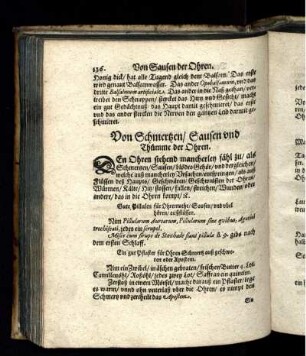 136. Von Sausen der Ohren.
Honig dick / hat alle Tugend gleich dem Balsam / Das erste
wird genant Balsamwasser. Das ander Opobalsamum, und das
dritte Balsamum artificiale. Das ander in die Naß gethan / ver-
treibet den Schnuppen / stercket das Hirn und Gedächt / macht
ein gut Gedächtnuß das Haupt damit geschmieret / das erst
und das ander stercken die Nerven den gantzen Leib darmit ge-
schmieret.
Von Schmertzen / Sausen vnd
Thümme der Ohren.
DEn Ohren stehend mancherley fähl zu / als
Schmertzen / Sausen / blödes Gehör / und dergleichen /
welche auß mancherley Ursachen entspringen / als auß
Flüssen des Haupts / Geschwären / Geschwulsten der Ohren /
Würmen / Kälte / Hitz / stossen / fallen / streichen / Wunden oder
andere / das in die Ohren kompt / &c.
Gute Pillulen für Ohrenwehe / Sausen / und übel
hören / außflüssen.
Nim Pillularum Aurearum, Pillularum sine quibus, Agarici
trochiscati, jedes ein scrupel.
Misce cum syrupo de Stœchade fiant pillulæ gibs nach dem
ersten Schlaff.
Ein gut Pflaster für Ohren Schmertz auß geschwo-
ren oder Apostem.
Nim ein Zwibel / in äschen gebraten / frischer Butter 4. Lot
Camillenöhl / Rosenöhl / jedes zwey Lot / Saffran ein quintlein.
Zerstoß in einem Mörsel / mache darauß ein Pflaster / legs
es warm / unnd offt verneuet über die Ohren / es nimpt den
Schmertz und zertheilt das Apostem.
Ein